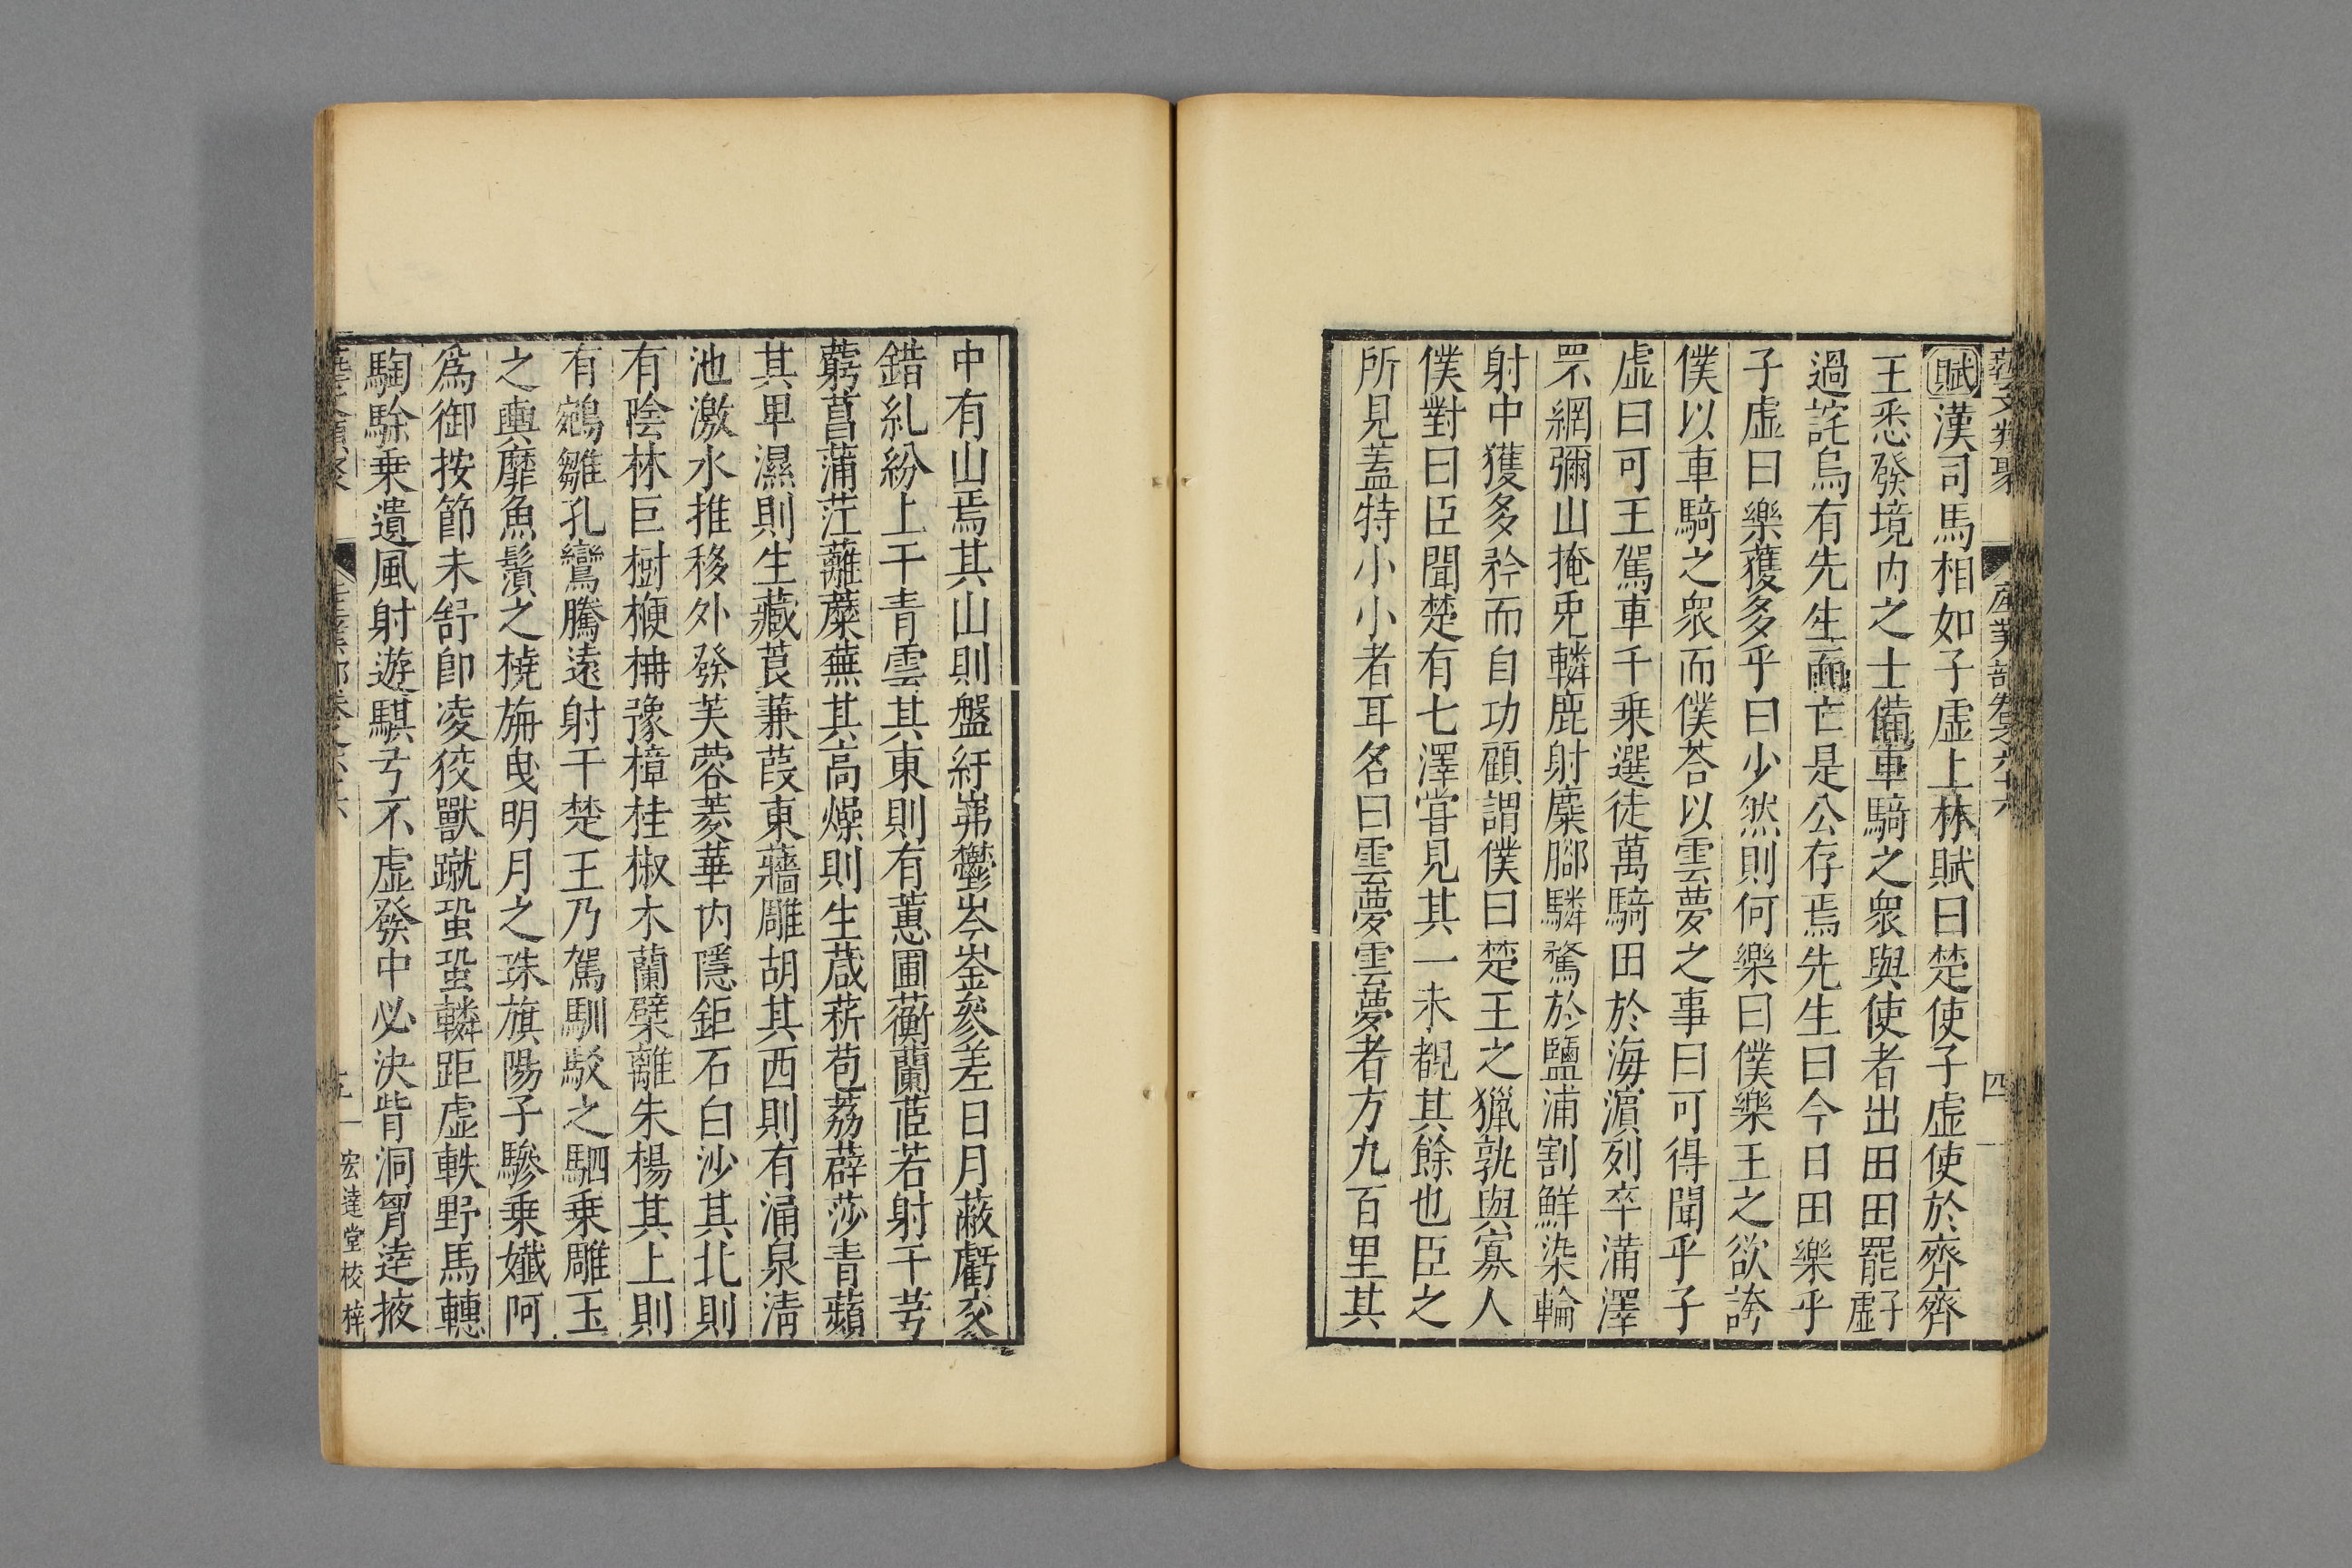 藝文類聚 産業部卷之六十六 四
賦漢司馬相如子虛上林賦曰楚使子虛使於齊齊
王悉發境内之士備車騎之衆與使者出田田罷子虛
過詫烏有先生而亡是公存焉先生曰今日田樂乎
子虛曰樂獲多乎曰少然則何樂曰僕樂王之欲誇
僕以車騎之衆而僕荅以雲夢之事曰可得聞乎子
虛曰可王駕車千乗選徒萬騎田於海濵列卒滿澤
罘網彌山掩兎轔鹿射麋腳驎騖於鹽浦割鮮染輪
射中獲多矜而自功顧謂僕曰楚王之獵孰與寡人
僕對曰臣聞楚有七澤甞見其一未覩其餘也臣之
所見蓋特小小者耳名曰雲夢雲夢者方九百里其
中有山焉其山則盤紆岪鬱岑崟參差日月蔽虧交
錯糺紛上干青雲其東則有蕙圃蘅蘭茝若射干芎
藭菖蒲茳蘺蘪蕪其高燥則生葴菥苞荔薜莎青薠
其卑濕則生藏莨蒹葭東蘠雕胡其西則有涌泉淸
池激水推移外發芙蓉菱華内隱鉅石白沙其北則
有陰林巨樹楩柟豫樟桂椒木蘭檗離朱楊其上則
有鵷雛孔鸞騰遠射干楚王乃駕馴駁之駟乗雕玉
之輿靡魚鬚之橈旃曳明月之珠旗陽子驂乗孅阿
爲御按節未舒卽凌狡獸蹴蛩蛩轔距虛軼野馬轊
騊駼乗遺風射遊騏㢧不虛發中必決眥洞胷達掖
宏達堂校梓